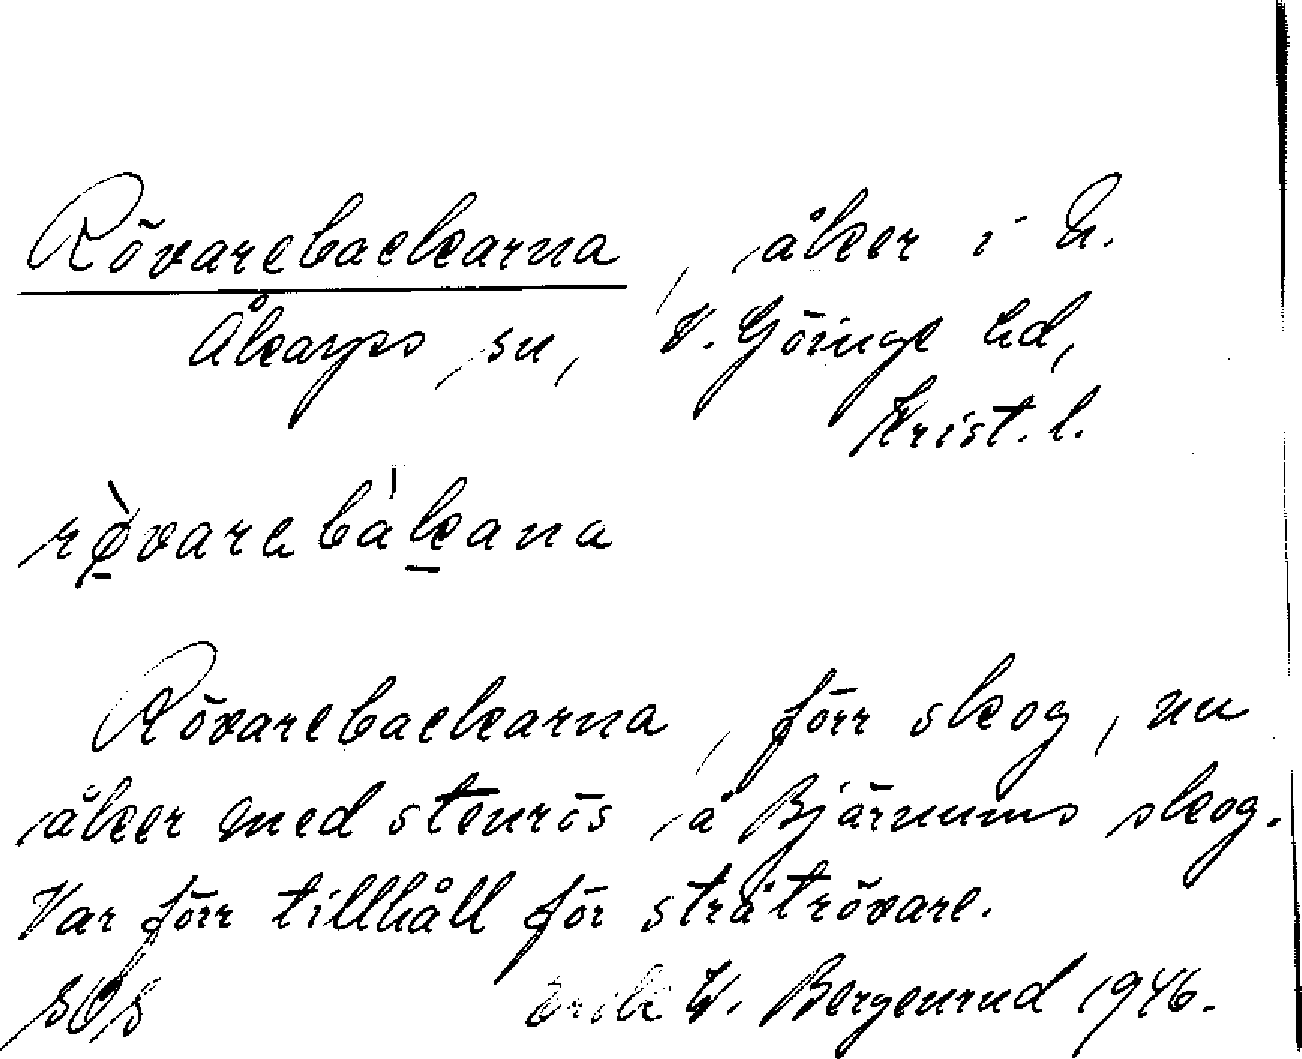 Rövarebackarna, åker i N.
Åkarps sn, V. Göinge hd,
Krist. l.
rǿvarebàkana
Rövarebackarna, förr skog, nu
åker med stenrös å Bjärnums skog.
Var förr tillhåll för stråtrövare.
SOS Erik W. Bergenrud 1946.